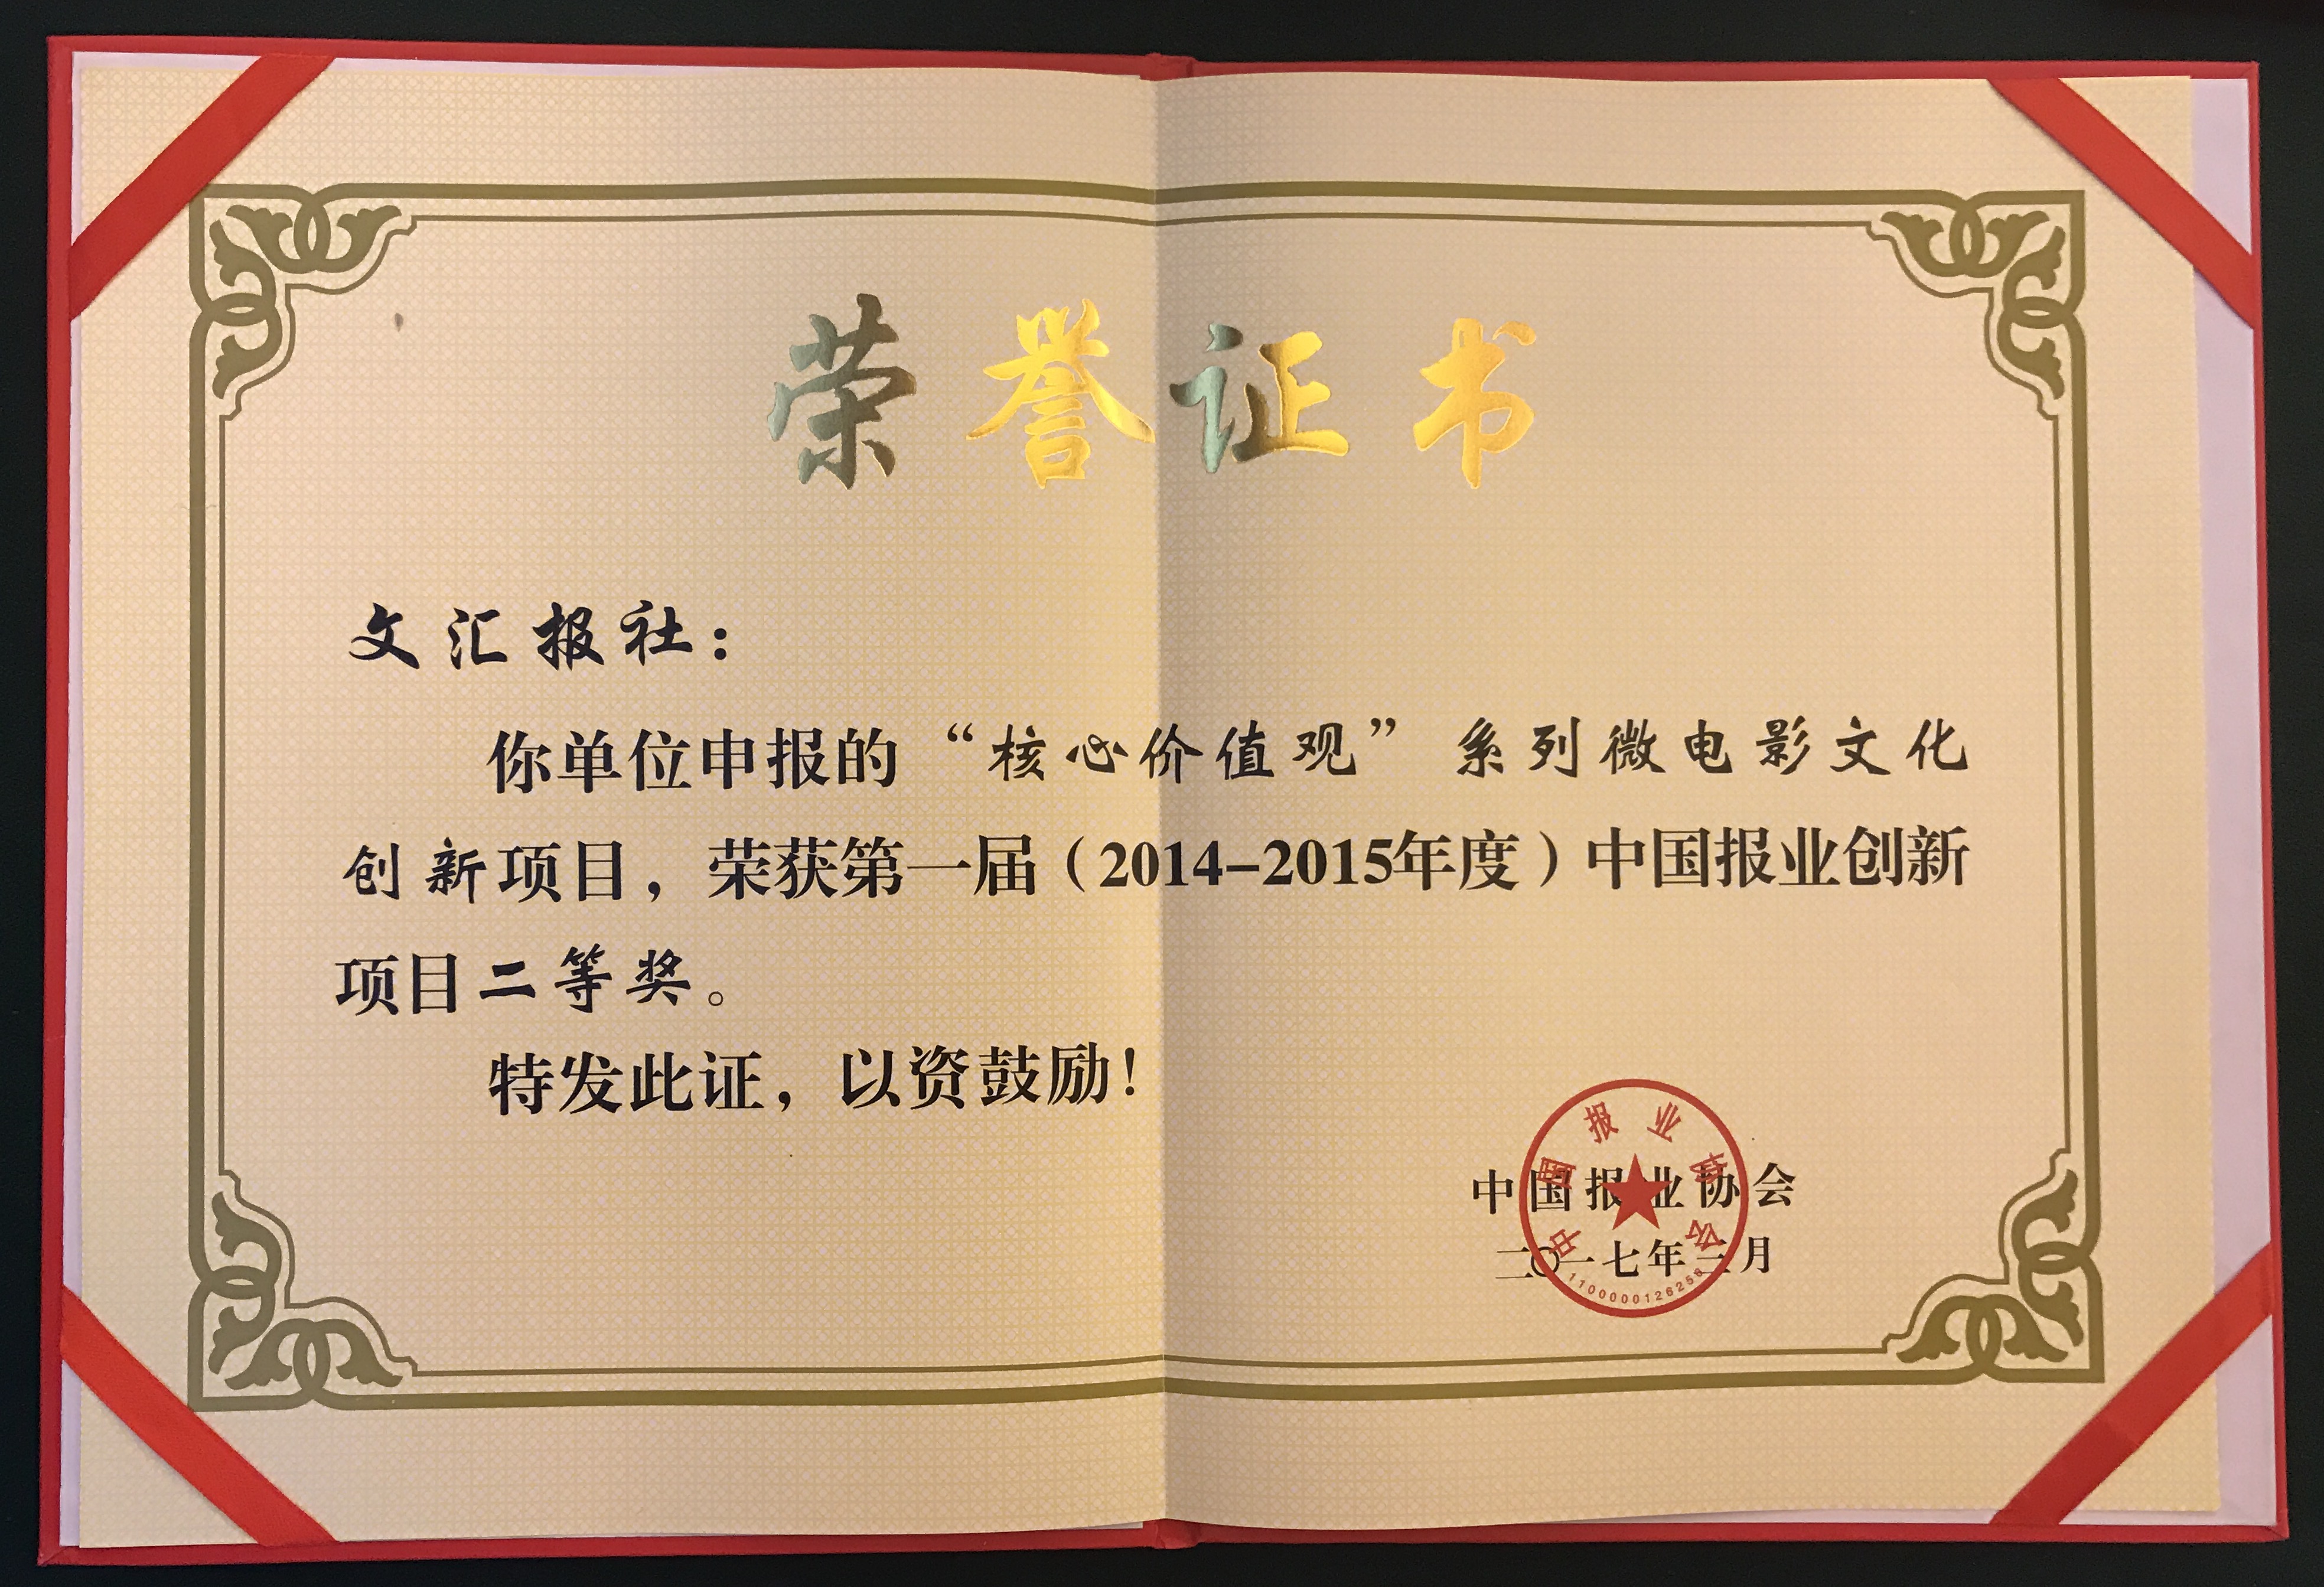 荣誉证书
文汇报社：
你单位申报的“核心价值观”系列微电影文化
创新项目，荣获第一届（2014-2015年度）中国报业创新
项目二等奖。
特发此证，以资鼓励！
中国报业协会
二〇一七年三月
中国报业协会